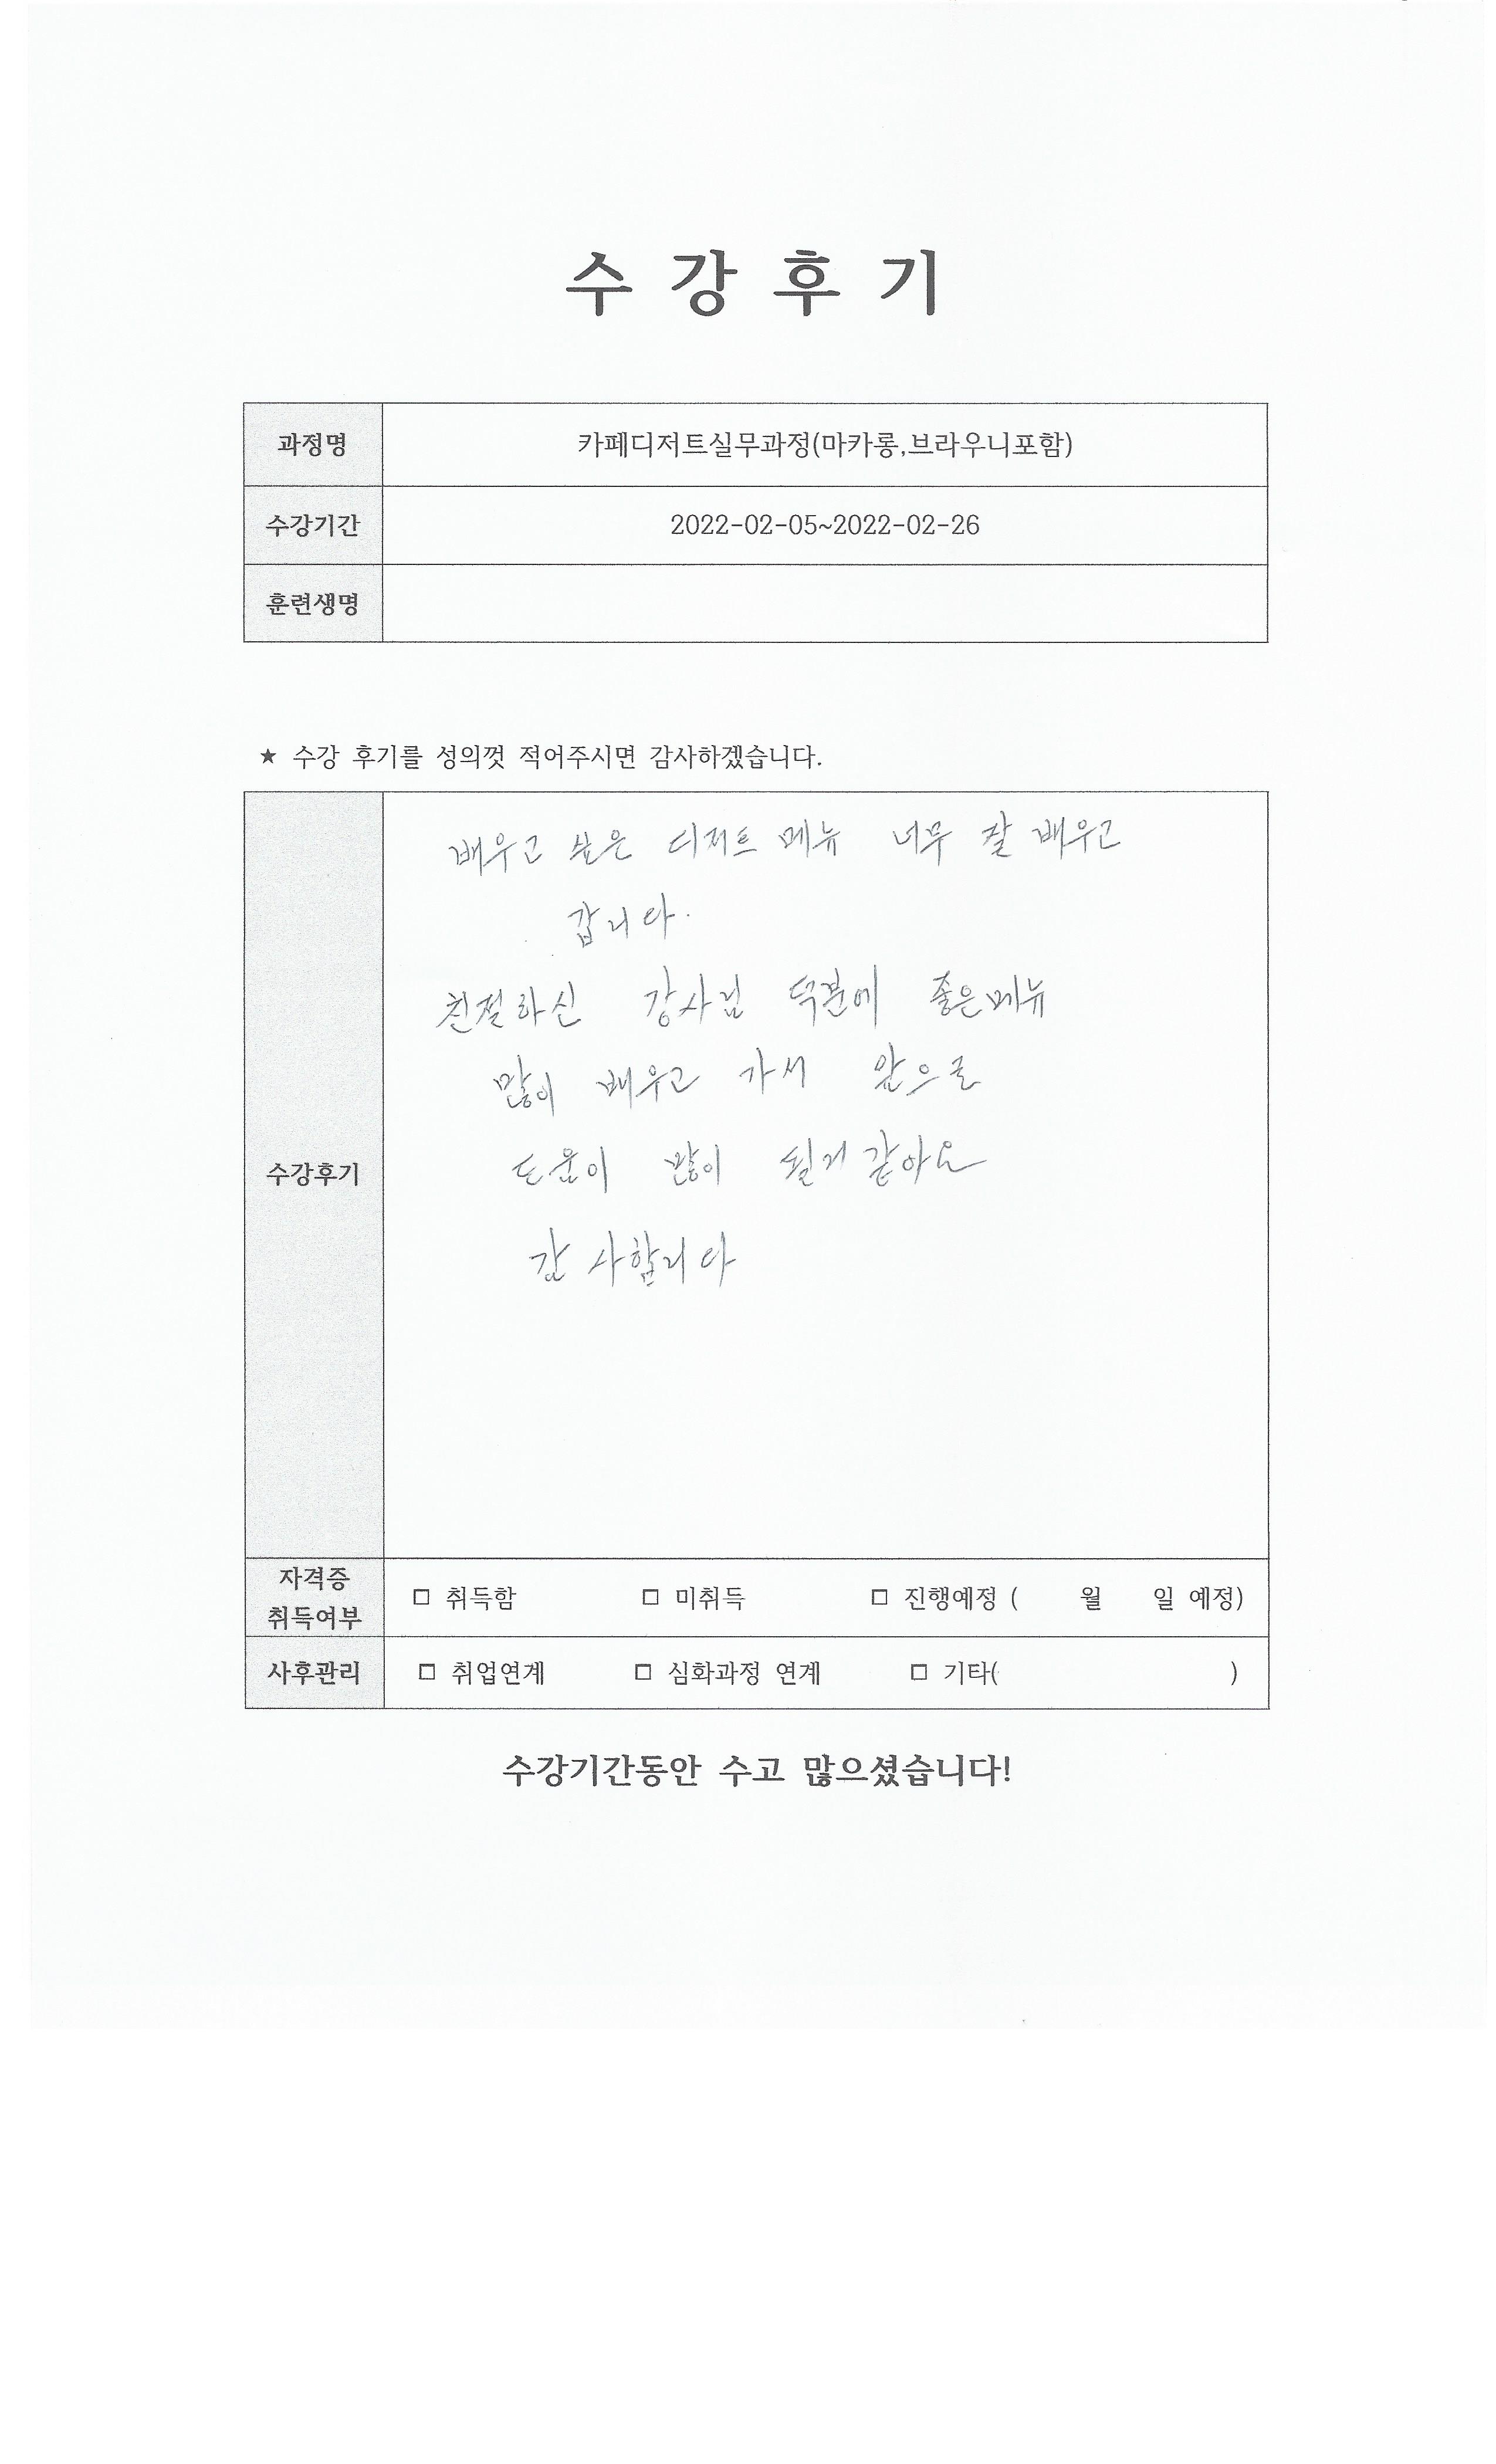 수 강 후 기
과정명 카페디저트실무과정(마카롱,브라우니포함)
수강기간 2022-02-05~2022-02-26
훈련생명
★ 수강 후기를 성의껏 적어주시면 감사하겠습니다.
배우고 싶은 디저트 메뉴 너무 잘 배우고
갑니다.
친절하신 강사님 덕분에 좋은메뉴
많이 배우고 가서 앞으로
도움이 많이 될거 같아요
감사합니다
수강후기
자격증
취득여부 □ 취득함 □ 미취득 □ 진행예정 ( 월 일 예정)
사후관리 □ 취업연계 □ 심화과정 연계 □ 기타( )
수강기간동안 수고 많으셨습니다!